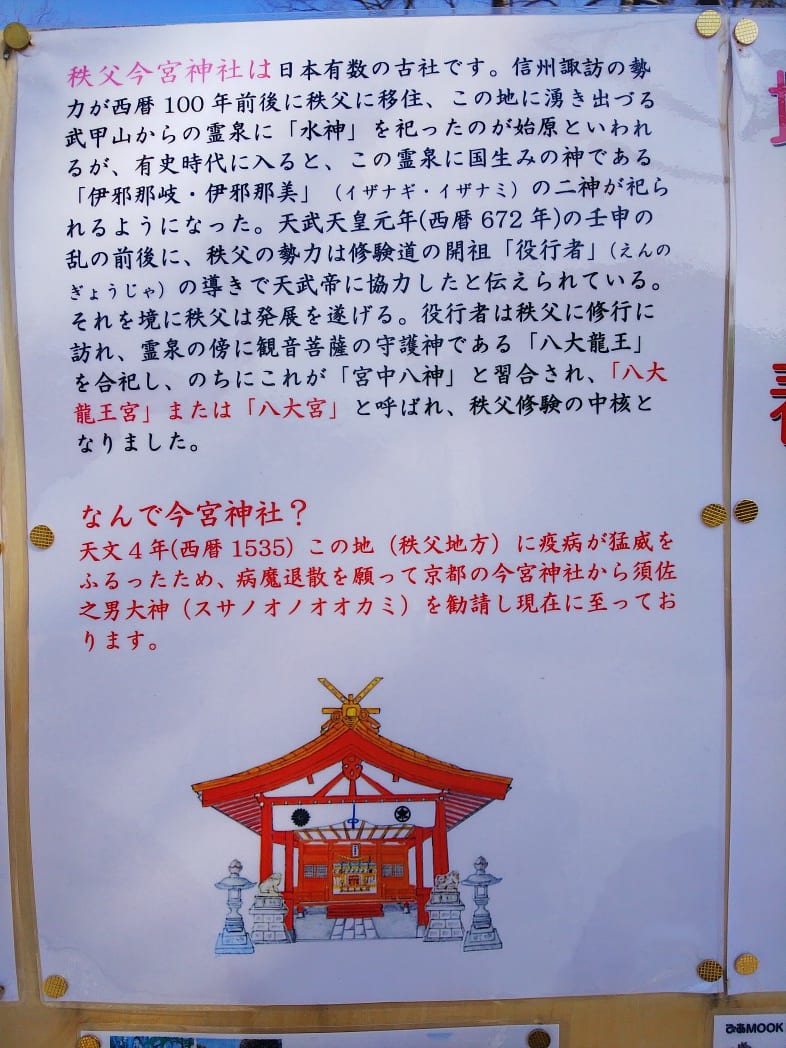 秩父今宮神社は日本有数の古社です。信州諏訪の勢
力が西暦100年前後に秩父に移住、この地に湧き出づる
武甲山からの霊泉に「水神」を祀ったのが始原といわれ
るが、有史時代に入ると、この霊泉に国生みの神である
「伊邪那岐・伊邪那美」（イザナギ・イザナミ）の二神が祀ら
れるようになった。天武天皇元年(西暦672年)の壬申の
乱の前後に、秩父の勢力は修験道の開祖「役行者」（えんの
ぎょうじゃ）の導きで天武帝に協力したと伝えられている。
それを境に秩父は発展を遂げる。役行者は秩父に修行に
訪れ、霊泉の傍に観音菩薩の守護神である「八大龍王」
を合祀し、のちにこれが「宮中八神」と習合され、「八大
龍王宮」または「八大宮」と呼ばれ、秩父修験の中核と
なりました。
なんで今宮神社？
天文4年(西暦1535）この地（秩父地方）に疫病が猛威を
ふるったため、病魔退散を願って京都の今宮神社から須佐
之男大神（スサノオノオオカミ）を勧請し現在に至ってお
ります。
ぴあMOOK